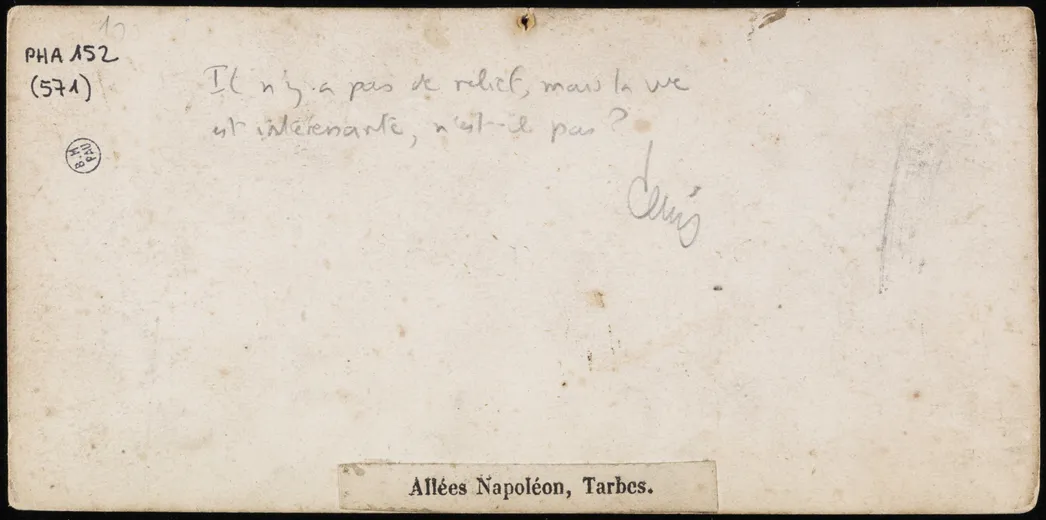 10
PHA 152
(571)
B.M
PAU
Il n'y a pas de relief, mais la vue
est intéressante, n'est-il pas ?
Denis
Allées Napoléon, Tarbes.